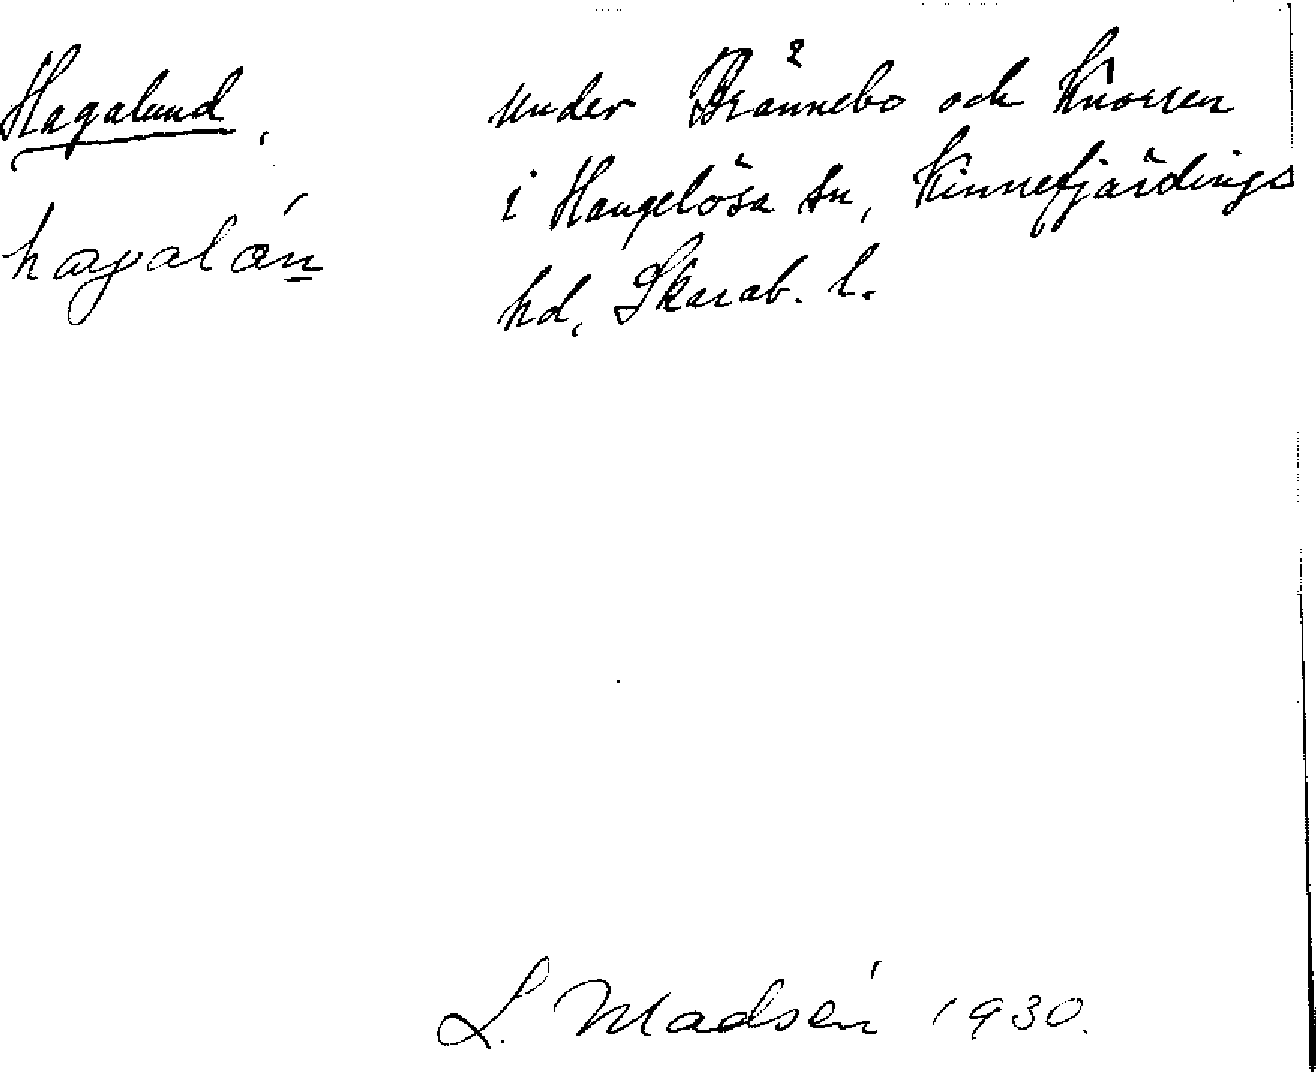 Hagalund,
hagalán
under Brännebo och Knossen
i Hangelösa sn, Kinnefjärdings
hd, Skarab. l.
L. Madsén 1930.